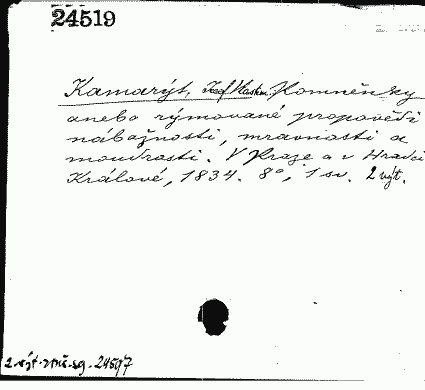 24519
Kamarýt, Josef Vlastim. Pomněnky
anebo rýmované propovědi
nábožnosti, mravnosti a
moudrosti. V Praze a v Hradci
Králové, 1834. 8°, 1 sv. 2 výt.
2. výt. sg. 24597